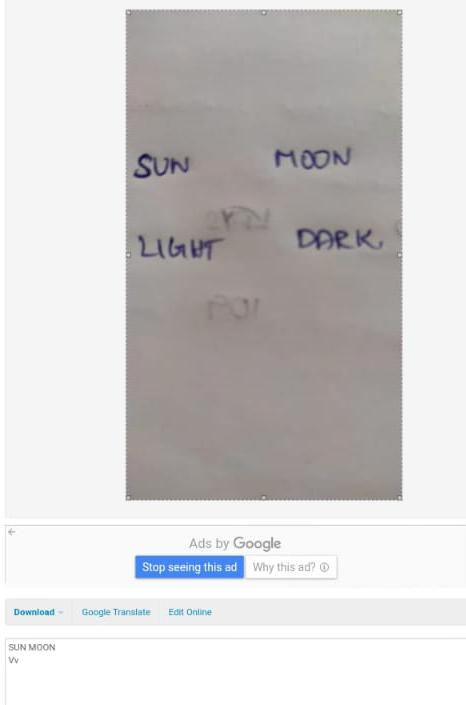 SUN MOON
LIGHT DARK
Ads by Google
Stop seeing this ad Why this ad?
Download Google Translate Edit Online
SUN MOON
Vv